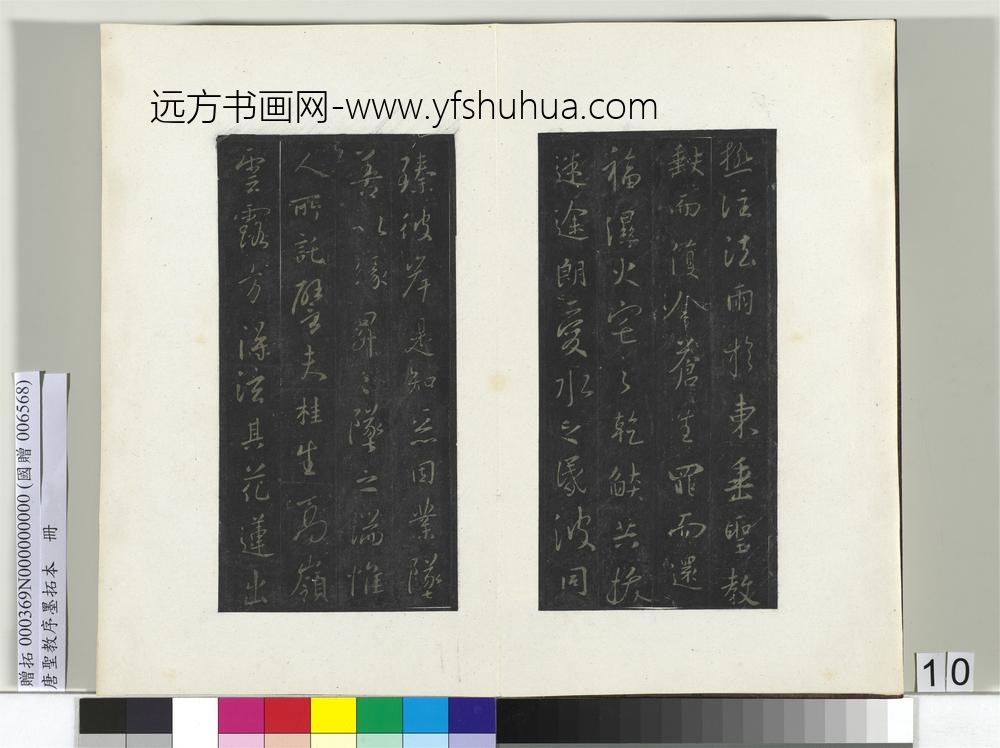 远方书画网-www.yfshuhua.com
拯注法雨於東垂聖教
缺而復全蒼生罪而還
福濕火宅之乾燄共拔
迷途朗愛水之昏波同
臻彼岸是知惡因業墜
善以緣昇昇墜之端惟
人所託譬夫桂生高嶺
雲露方得泫其花蓮出
贈拓 000369N000000000 (國贈 006568)
唐聖教序墨拓本 冊
10